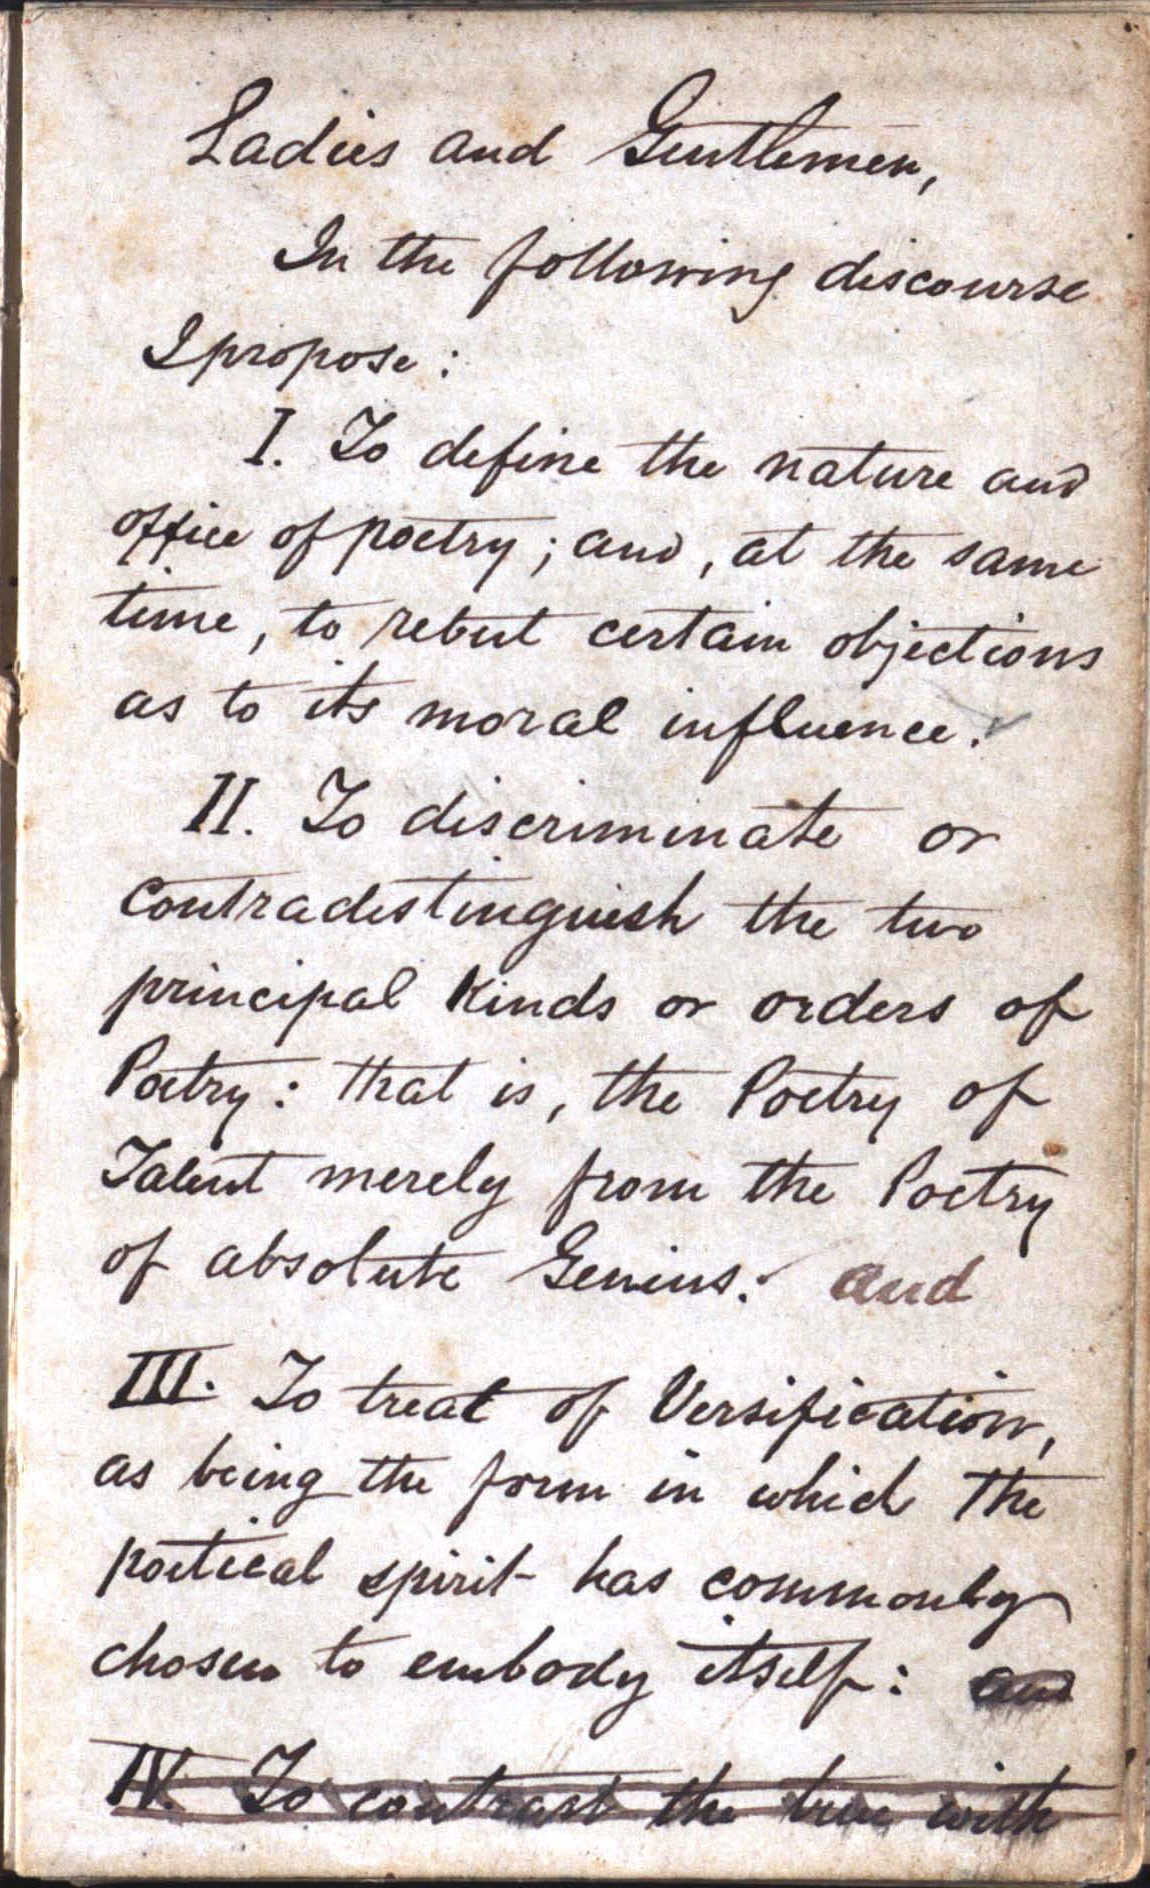 Ladies and Gentlemen,
In the following discourse
I propose:
I. To define the nature and
office of poetry; and, at the same
time, to rebut certain objections
as to its moral influence.
II. To discriminate or
contradistinguish the two
principal kinds or orders of
Poetry: that is, the Poetry of
Talent merely from the Poetry
of absolute Genius: and
III. To treat of Versification,
as being the form in which the
poetical spirit has commonly
chosen to embody itself: and
IV. To contrast the true with